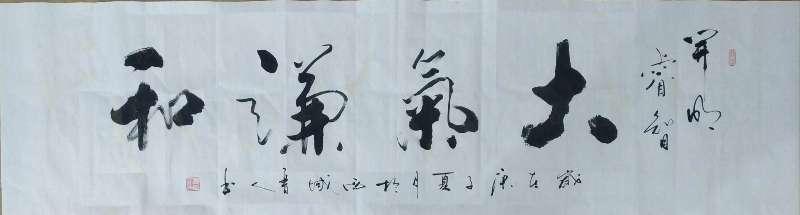 開明
睿智
大氣謙和
歲在庚子夏月於西城人書